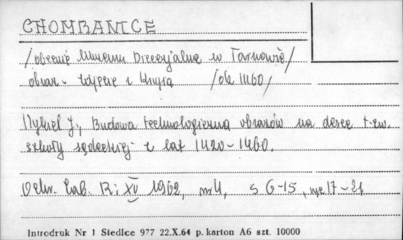 CHOMRANICE
/obecnie Muzeum Diecezjalne w Tarnowie/
obraz - Zdjęcie z Krzyża /ok 1460/
Nykiel J., Budowa technologiczna obrazów na desce t.zw.
szkoły sądeckiej z lat 1420-1460.
Ochr. Zab. R: XV 1962, nr 4, s 6-15, 17-21
Introdruk Nr 1 Siedlce 977 22.X.64 p. karton A6 szt. 10000